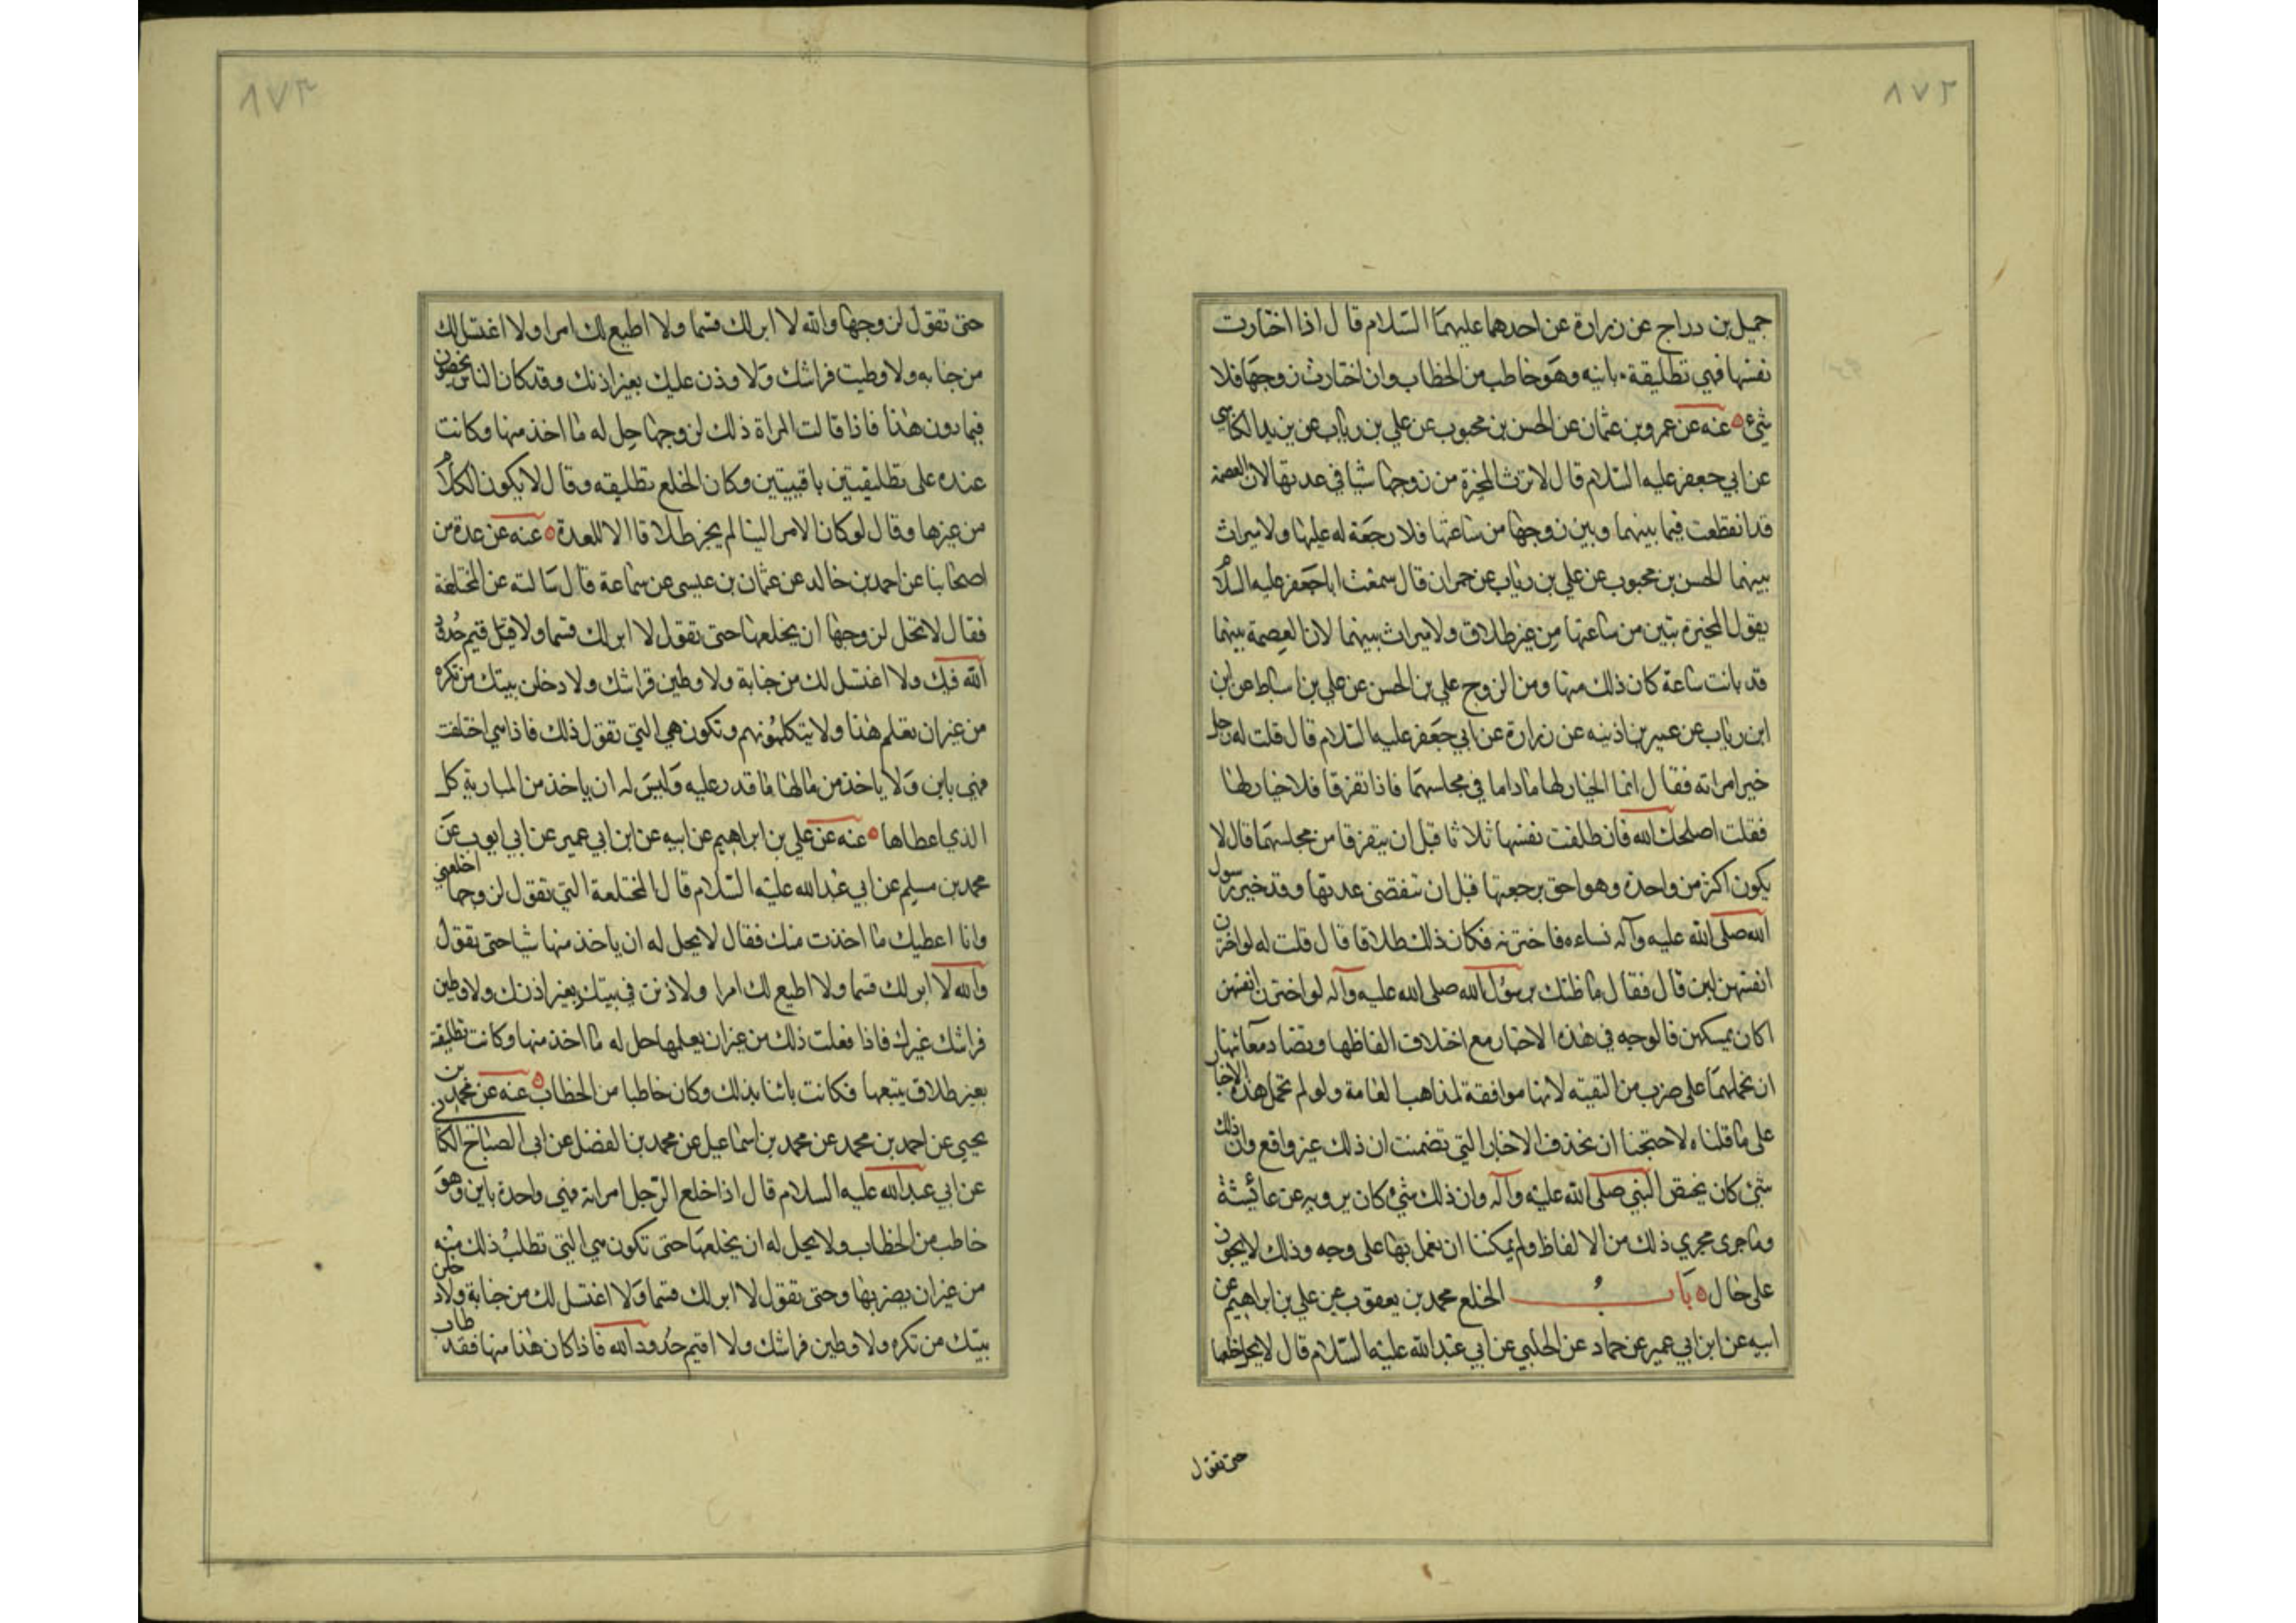 ٨٧٢
جميل بن دراج عن زرارة عن احدهما عليهما السلام قال اذا اختارت
نفسها فهي تطليقة باينه وهو خاطب من الخطاب وان اختارت زوجها فلا
شيء عنه عن عمرو بن عثمان عن الحسن بن محبوب عن علي بن رياب عن يزيد الكناسي
عن ابي جعفر عليه السلام قال لا ترث المخيرة من زوجها شيا في عدتها لان العصمة
قد انقطعت فيما بينهما وبين زوجها من ساعتها فلا رجعة له عليها ولا ميراث
بينهما الحسن بن محبوب عن علي بن رياب عن حمران قال سمعت ابا جعفر عليه السلام
يقول المخيرة تبين من ساعتها من غير طلاق ولا ميراث بينهما لان العصمة بينهما
قد بانت ساعة كان ذلك منها ومن الزوج علي بن الحسن عن علي بن اسباط عن ابن
ابن رياب عن عمير بن اذينه عن زرارة عن ابي جعفر عليه السلام قال قلت له رجل
خير امراته فقال انما الخيار لها ما داما في مجلسهما فاذا تفرقا فلا خيار لها
فقلت اصلحك الله فان طلقت نفسها ثلاثا قبل ان يتفرقا من مجلسهما قال لا
يكون اكثر من واحدة وهو احق برجعتها قبل ان تنقضي عدتها وقد خير رسول
الله صلى الله عليه وآله نساءه فاخترنه فكان ذلك طلاقا قال قلت له لو اخترن
انفسهن لبن قال فقال ما ظنك برسول الله صلى الله عليه وآله لو اخترن انفسهن
اكان يمسكهن فالوجه في هذه الاخبار مع اختلاف الفاظها وتضاد معانيها
ان نحملهما على ضرب من التقيته لانها موافقة لمذاهب العامة ولو لم نحمل هذه الاخبار
على ما قلناه لاحتجنا ان نحذف الاخبار التي تضمنت ان ذلك غير واقع وان ذلك
شئ كان يخص النبي صلى الله عليه وآله وان ذلك شئ كان يرويه عن عائيشة
وما جرى مجري ذلك من الالفاظ ولم يمكننا ان نعمل بها على وجه وذلك لا يجوز
على حال باب الخلع محمد بن يعقوب عن علي بن ابراهيم عن
ابيه عن ابن ابي عمير عن حماد عن الحلبي عن ابي عبد الله عليه السلام قال لا يحل خلعها
حتى تقول
٨٧٣
حتى تقول لزوجها والله لا ابر لك قسما ولا اطيع لك امرا ولا اغتسل لك
من جنابه ولا وطيت فراشك ولا وذن عليك بغير اذنك وقد كان الناس يرخصون
فيما دون هذا فاذا قالت المراة ذلك لزوجها حل له ما اخذ منها وكانت
عنده على تطليقتين باقيتين وكان الخلع تطليقه وقال لا يكون الكلام
من غيرها وقال لو كان الامر الينا لم يجز طلاقا الا للعدة عنه عن عدة من
اصحابنا عن احمد بن خالد عن عثمان بن عيسى عن سماعة قال سالته عن المختلعة
فقال لا تحل لزوجها ان يخلعها حتى تقول لا ابر لك قسما ولا اقيم حدود
الله فيك ولا اغتسل لك من جنابة ولا وطين فراشك ولا دخلن بيتك من تكره
من غير ان تعلم هذا ولا يتكلمونهم وتكون هي التي تقول ذلك فاذا هي اختلعت
فهي باين ولا ياخذ من مالها ما قدر عليه وليس له ان ياخذ من المبارية كل
الذي اعطاها عنه عن علي بن ابراهيم عن ابيه عن ابن ابي عمير عن ابي ايوب عن
محمد بن مسلم عن ابي عبد الله عليه السلام قال المختلعة التي تقول لزوجها اخلعني
وانا اعطيك ما اخذت منك فقال لا يحل له ان ياخذ منها شيا حتى تقول
والله لا ابر لك قسما ولا اطيع لك امرا ولاذنن في بيتك بغير اذنك ولاوطين
فراشك غيرك فاذا فعلت ذلك من غير ان يعلمها حل له ما اخذ منها وكانت تطليقة
بغير طلاق يتبعها فكانت باينا بذلك وكان خاطبا من الخطاب عنه عن محمد بن
يحيى عن احمد بن محمد عن محمد بن اسماعيل عن محمد بن الفضل عن ابي الصباح الكناني
عن ابي عبد الله عليه السلام قال اذا خلع الرجل امراته فهي واحدة باين وهو
خاطب من الخطاب ولا يحل له ان يخلعها حتى تكون هي التي تطلب ذلك منه
من غير ان يضر بها وحتى تقول لا ابر لك قسما ولا اغتسل لك من جنابة ولادخلن
بيتك من تكره ولاوطين فراشك ولا اقيم حدود الله فاذا كان هذا منها فقد طاب